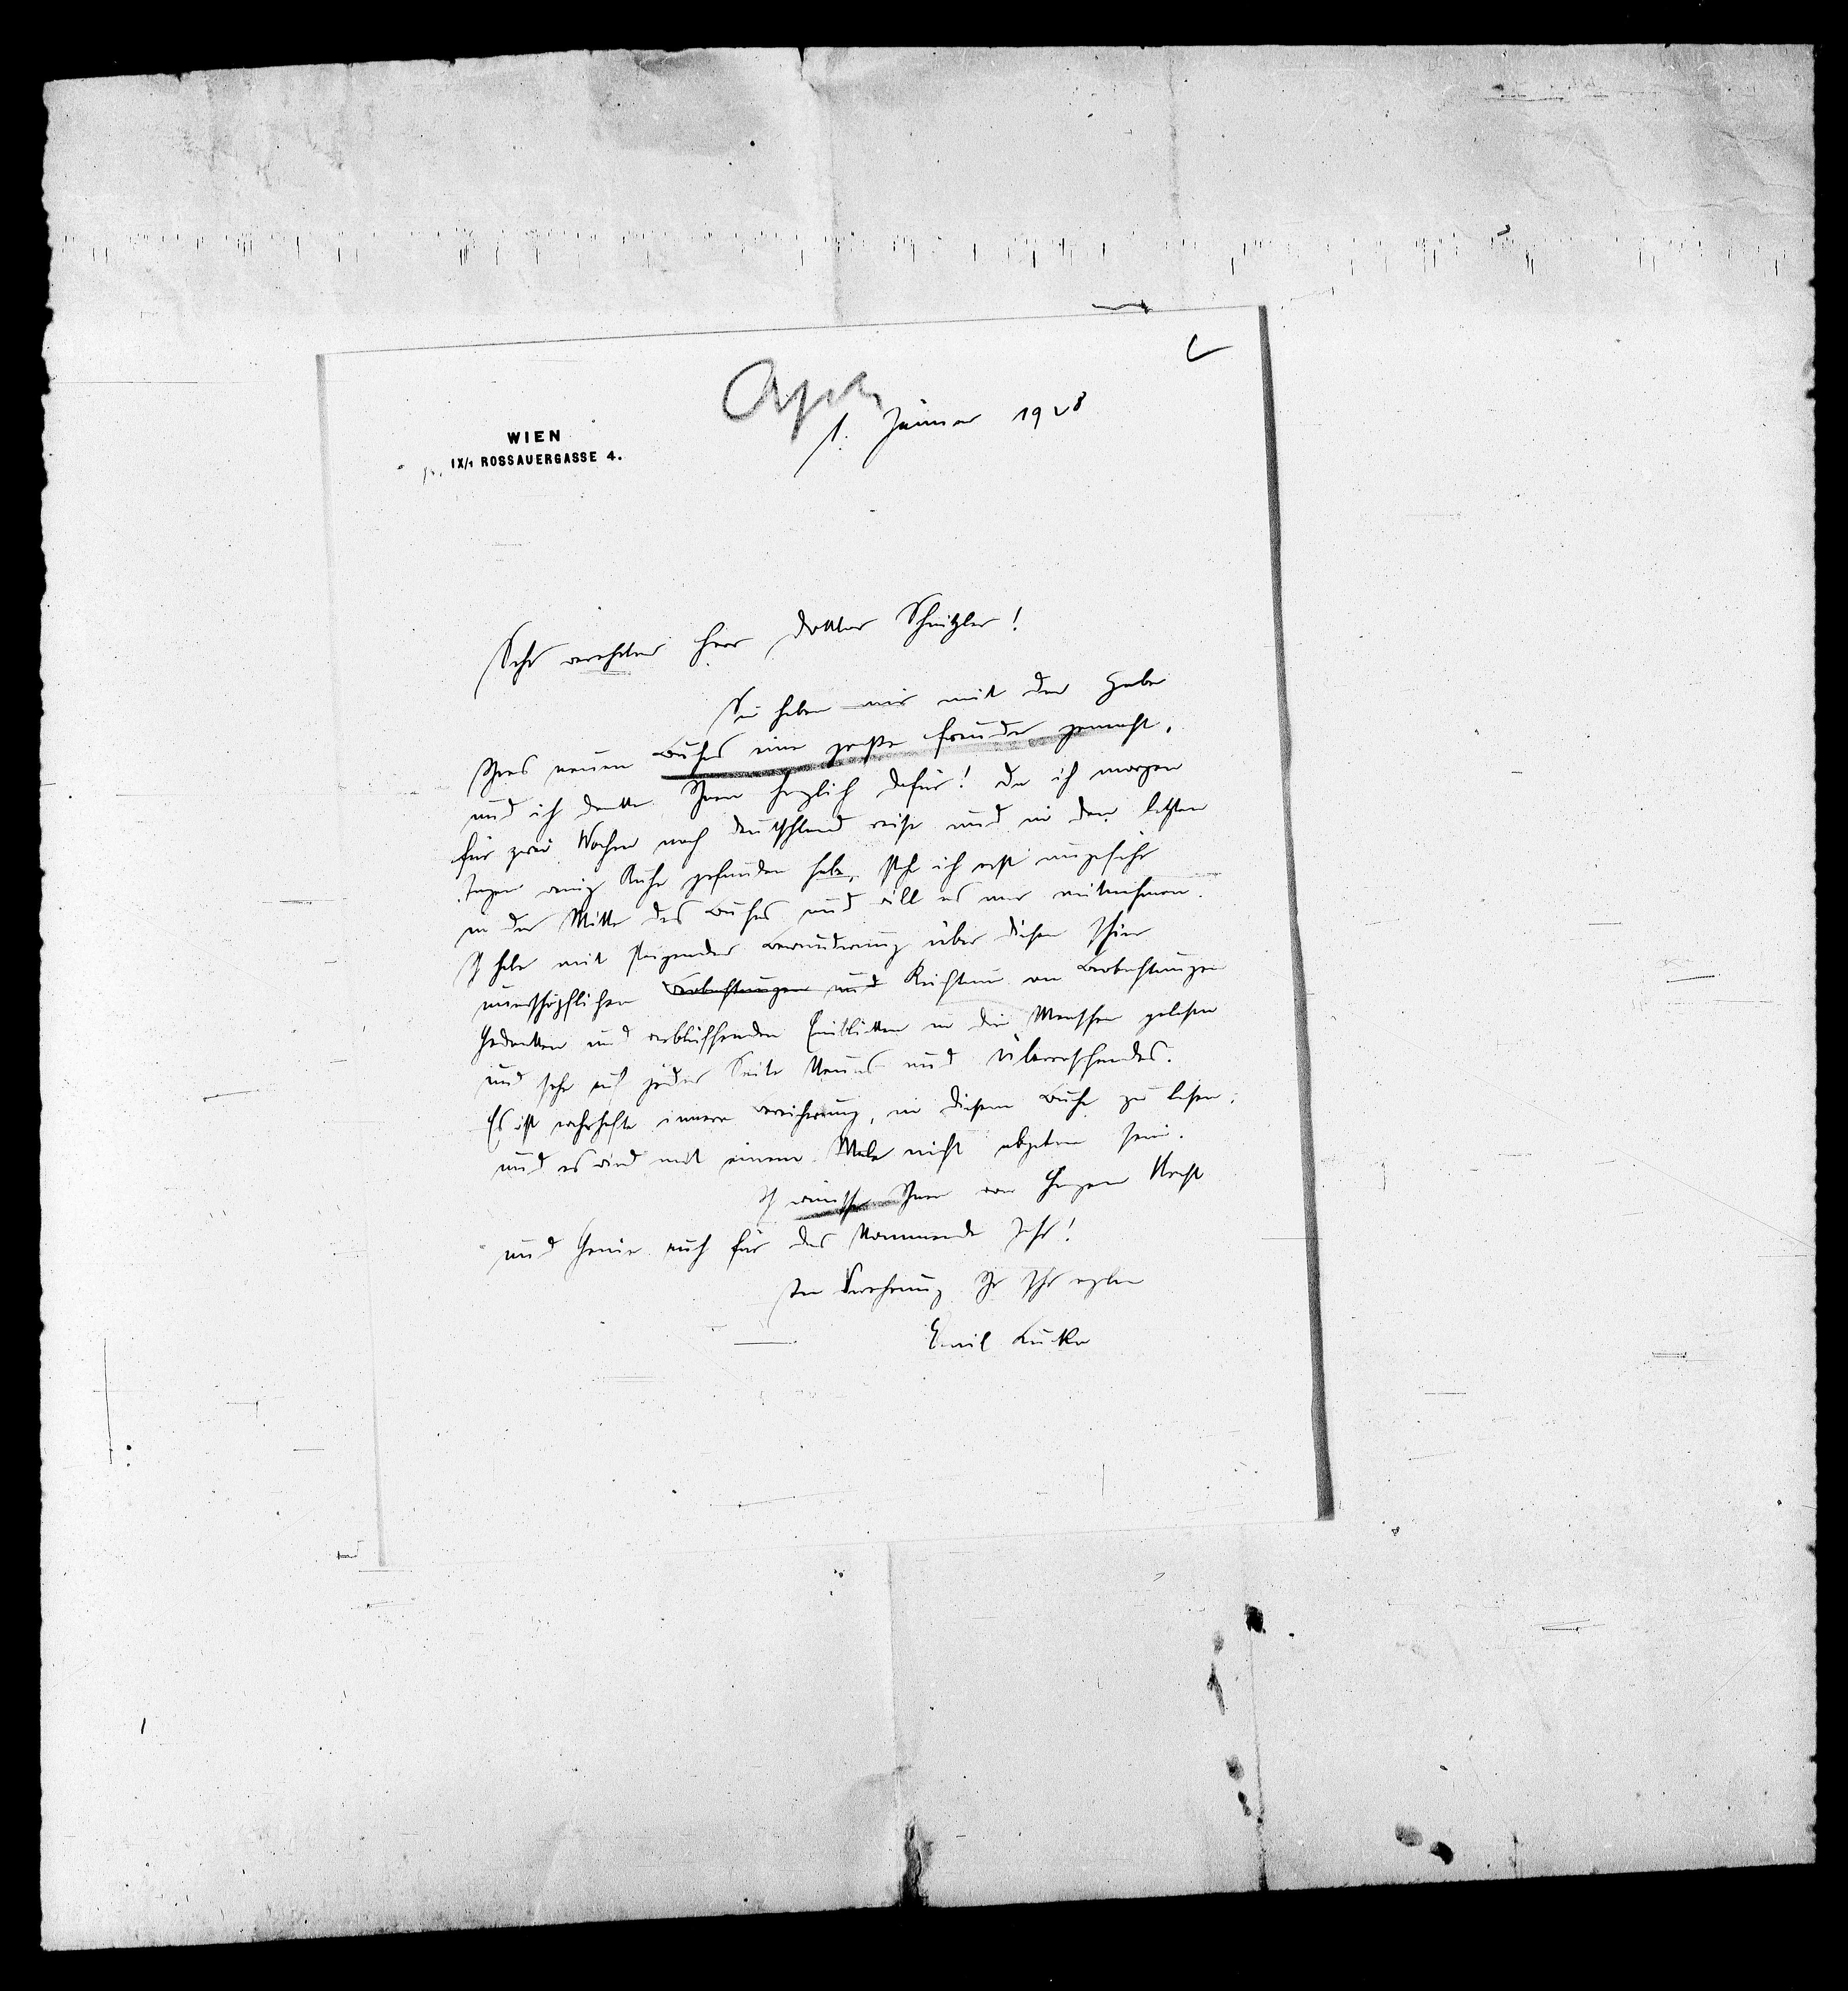 WIEN
IX/1 ROSSAUERGASSE 4.
1. Jänner 1928
Sehr verehrter Herr Doktor Schnitzler!
Sie haben mir mit der Gabe
Ihres neuen Buches eine große Freude gemacht,
und ich danke Ihnen herzlich dafür! Da ich morgen
für zwei Wochen nach Deutschland reise und in den letzten
Tagen wenig Ruhe gefunden habe, stehe ich erst ungefähr
in der Mitte des Buches und will es nun mitnehmen.
Ich habe mit steigender Bewunderung über diesen schier
unerschöpflichen Beobachtungen und Reichtum an Beobachtungen
Gedanken und verblüffenden Einblicken in die Menschen gelesen
und sehe auf jeder Seite Neues und Überraschendes.
Es ist wahrhafte innere Bereicherung, in diesem Buche zu lesen,
und es wird mit einem Male nicht abgetan sein.
Ich wünsche Ihnen von Herzen Kraft
und Genie auch für das kommende Jahr!
In Verehrung Ihr sehr ergebener
Emil Lucka